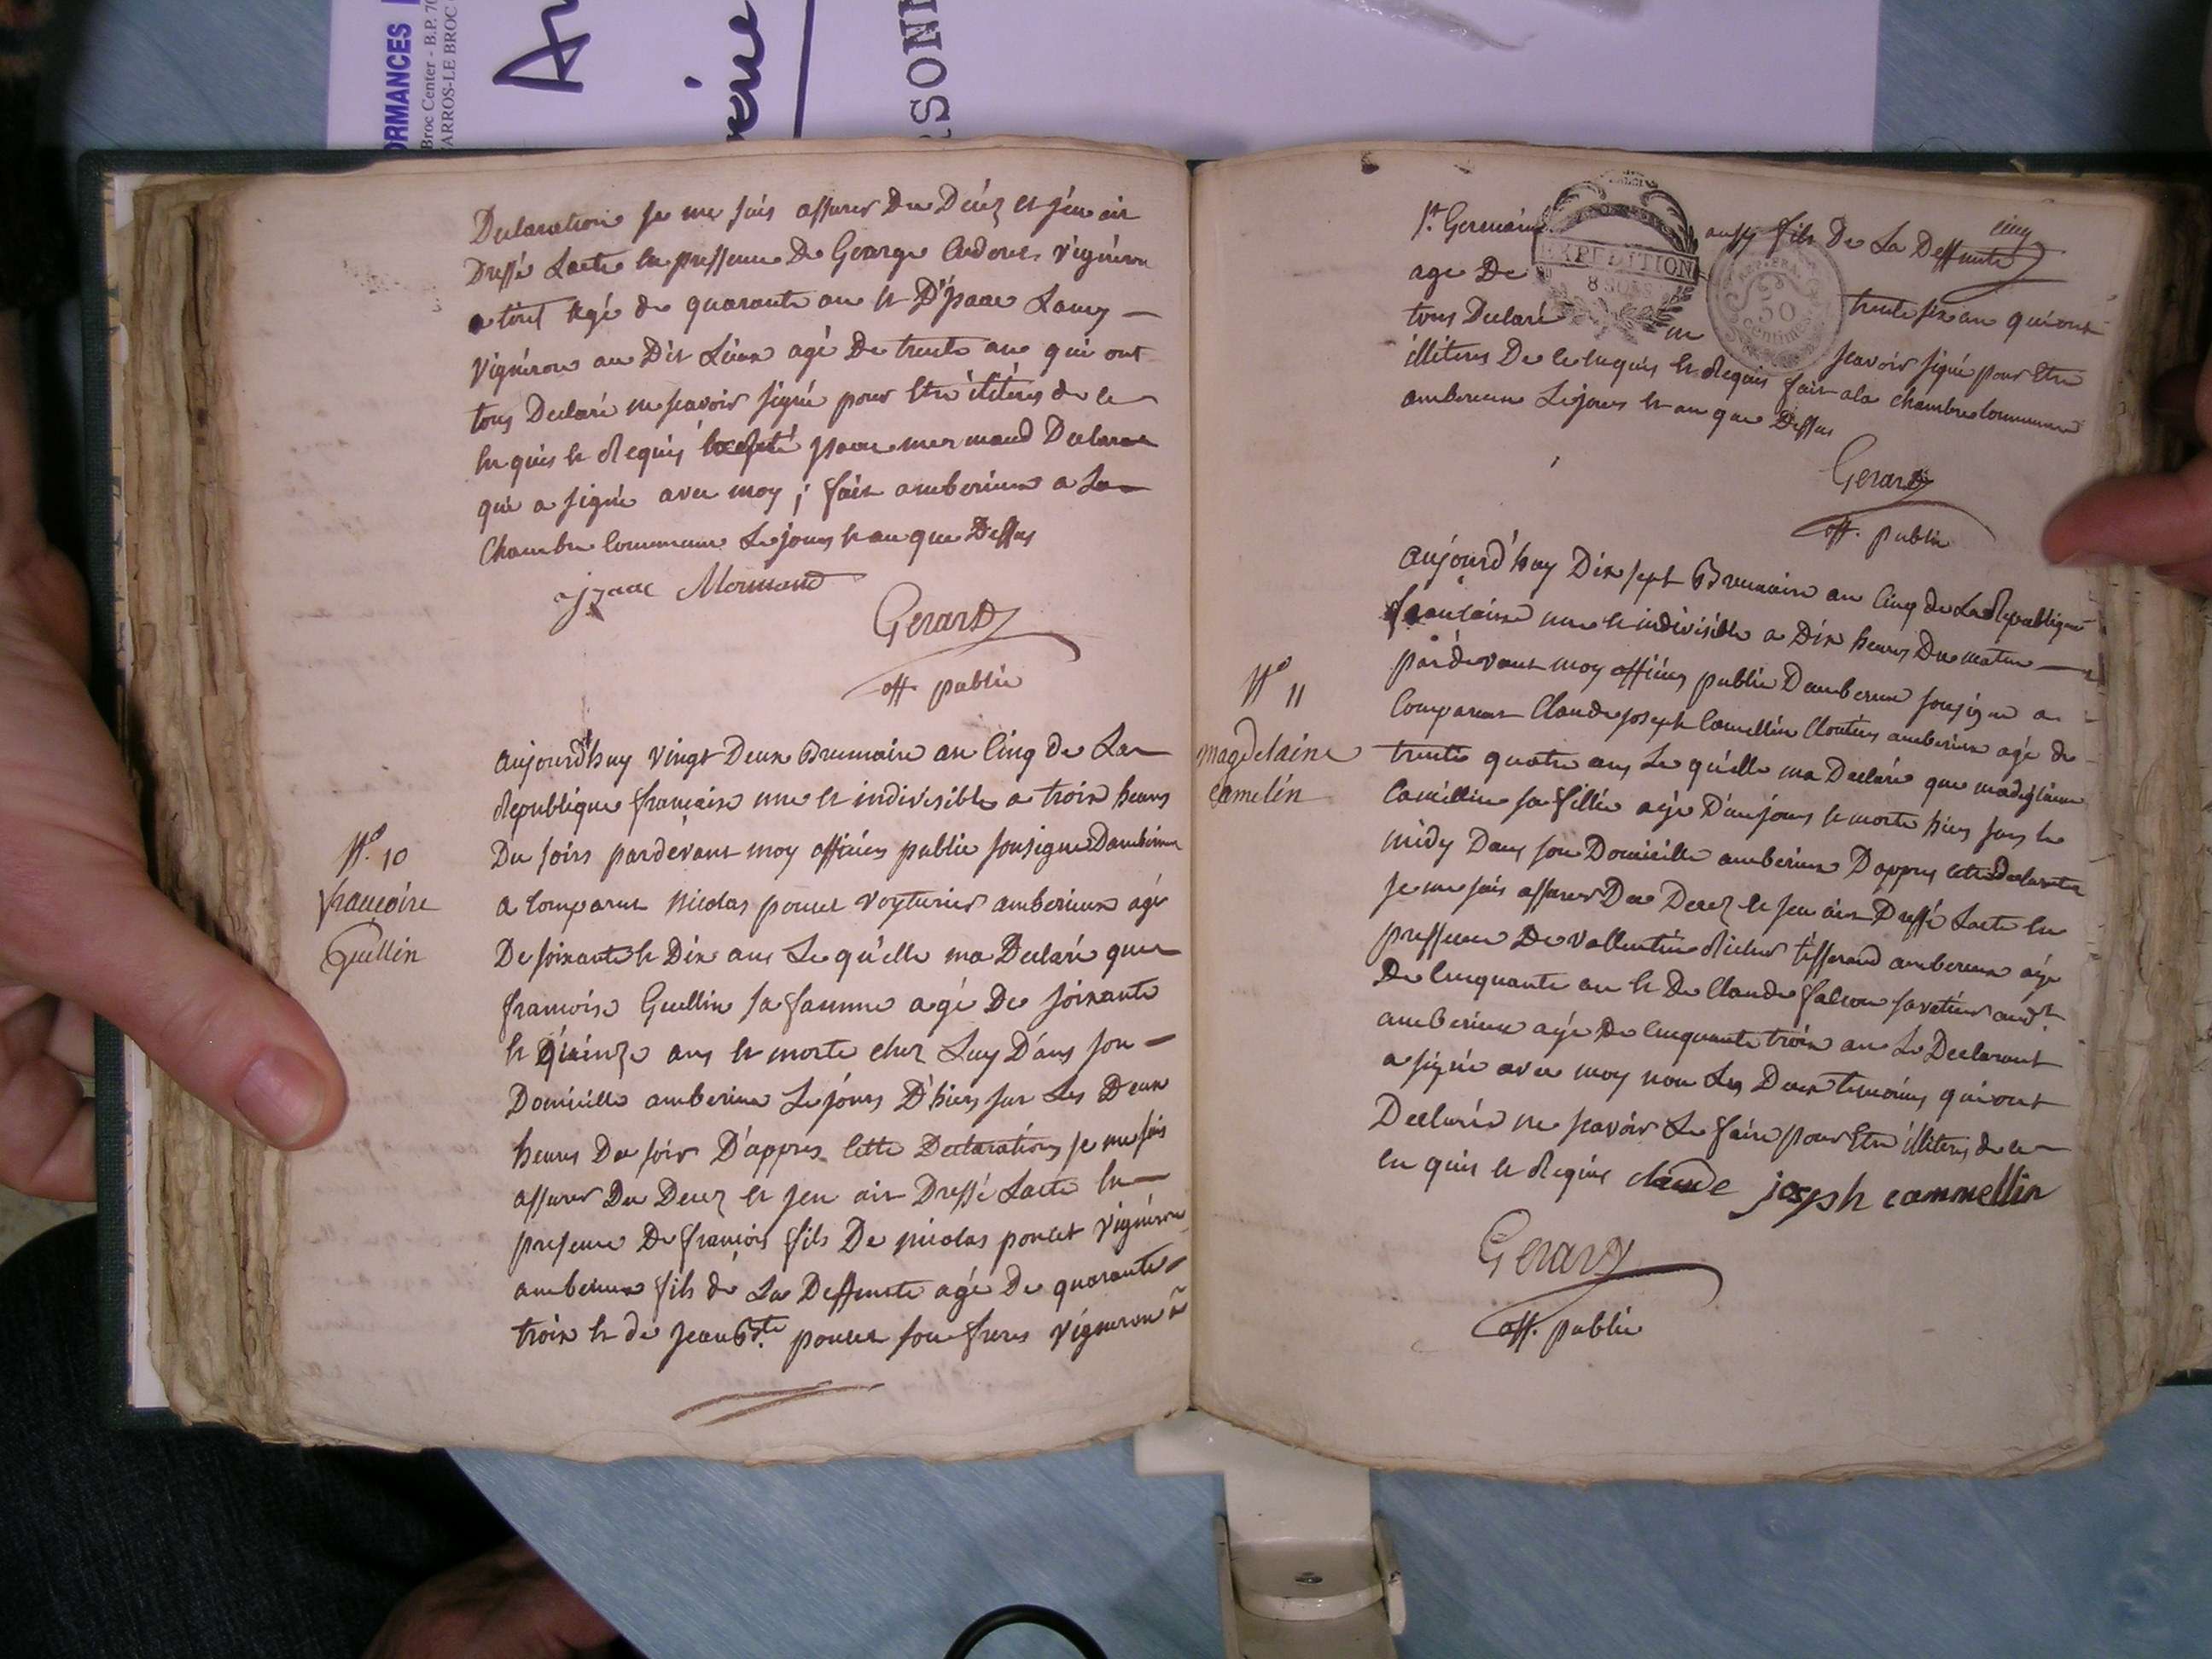 ORMANCES
Broc Center - B.P. 70
ARROS-LE BROC
SONN
Declaration je me suis assurer Du Décéz et jen ait
Dressé Lacte en presseure De George Vigneron
agé de quarante ans et D'jsaac Lamy
vigneron au Dit Lieux agé De trente ans qui ont
tous Declaré ne scavoir signé pour Etre iliteres de ce
enquis et Requis jsaac mermand Declarant
qui a signé avec moy ; fait amberieux a La
Chambre Commune Le jours et an que Dessus
jzaac Mermand
Gerard
off. public
N° 10
francoise
Guillin
aujourd'huy vingt Deux Brumaire an Cinq de La
Republique francaise une et indivisible a troix heures
Du soirs pardévant moy officiers public sousigne Damberieux
a comparut Nicolas poncet voyturier amberieux agé
De soixante et Dix ans Le qu'elle ma Declaré que
francoise Guillin sa famme agé De soixante
et quinze ans et morte chez Luy Dans son
Domicille amberieux Le jours D'hiers sur Les Deux
heures Du soir D'appres cette Declarations je me suis
assurer Du Decez et jen ait Dressé Lacte en
presence De francois fils De nicolas poncet vigneron
amberieux fils de La Deffunte agé De quarante
troix et de jean Bte. poncet son freres vigneron a
St. Germain aussy fils De La Deffunte
cinq
EXPEDITION
8 SOLS
REP. FRA.
50
centimes
age De trente six ans qui ont
tous Declaré ne scavoir signé pour Etre
illiteres De ce enquis et Requis fait a la chambre Commune
amberieux Le jours et an que Dessus
Gerard
off. public
N° 11
magdelaine
camelin
aujourd'huy Dix sept Brumaire an Cinq de La Republique
francaise une et indivisible a Dix heures Du matin
pardevant moy officiers public Damberieux sousigne a
Comparut Claude joseph Camellin Cloutier amberieux agé de
trente quatre ans Le qu'elle ma Declaré que madeglaine
Camellin sa fillie agé D'un jours et morte hiers sur le
midy Dans son Domicille amberieux Dappres cette Declaration
je me suis assurer Du Decez et jen ait Dressé Lacte en
pressence De vallentin Richer tisserand amberieux age
De cinquante ans et De Claude falcon savetier audt
amberieux agé De cinquante troix ans Le Declarant
a signé avec moy non Les Deux temoins qui ont
Declarés ne scavoir Le faire pour Etre illiteres de ce
enquis et Requis claude joseph cammellin
Gerard
off. public